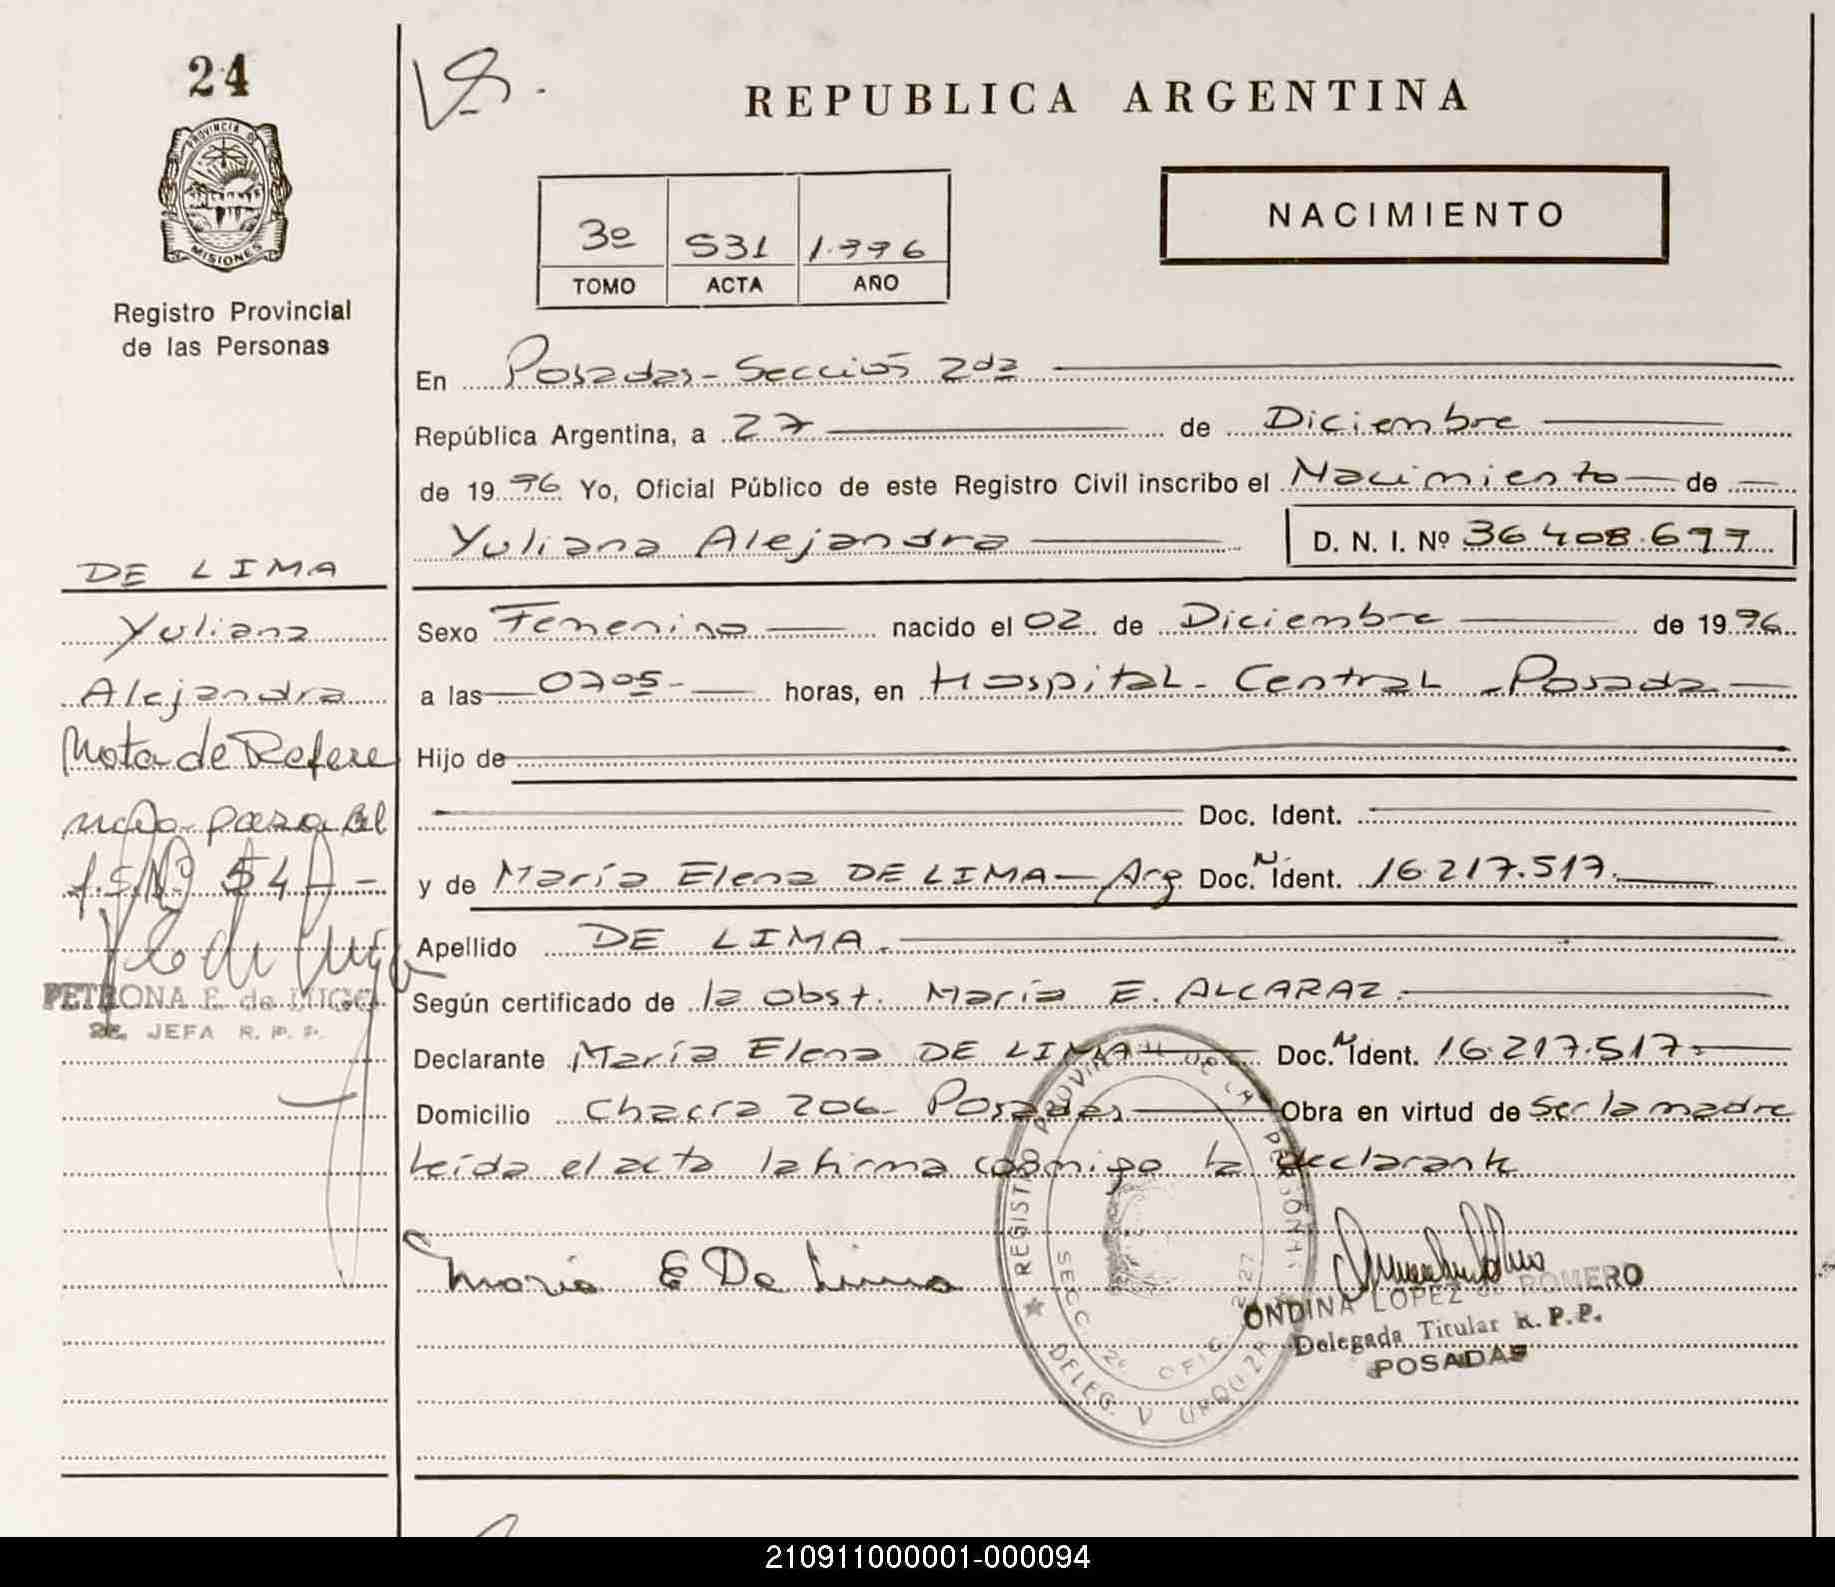 24
PROVINCIA DE
MISIONES
Registro Provincial
de las Personas
DE LIMA
Yuliana
Alejandra
Nota de Refere
ncia pasa al
f.s. Nº 547 -
PETRONA E. de LUGO
2a. JEFA R. P. P.
REPUBLICA ARGENTINA
NACIMIENTO
3º 531 1.996
TOMO ACTA AÑO
En Posadas - Sección 2da
República Argentina, a 27 de Diciembre
de 19 96 Yo, Oficial Público de este Registro Civil inscribo el Nacimiento de
Yuliana Alejandra D. N. I. Nº 36.408.677
Sexo Femenino nacido el 02 de Diciembre de 19 96
a las 0705 - horas, en Hospital - Central - Posada
Hijo de
Doc. Ident.
y de María Elena DE LIMA - Arg Doc. N Ident. 16.217.517.
Apellido DE LIMA.
Según certificado de la obst. María E. ALCARAZ.
Declarante María Elena DE LIMA Doc. N Ident. 16.217.517.
Domicilio Chacra 206 - Posadas Obra en virtud de ser la madre
leída el acta la firma conmigo la declarante
Maria E De Lima
REGISTRO PROVINCIAL DE LAS PERSONAS
SECC 2a OFIC. 2127
DELEG. V URQUIZA
ONDINA LOPEZ de ROMERO
Delegada Titular R. P. P.
POSADAS
210911000001-000094